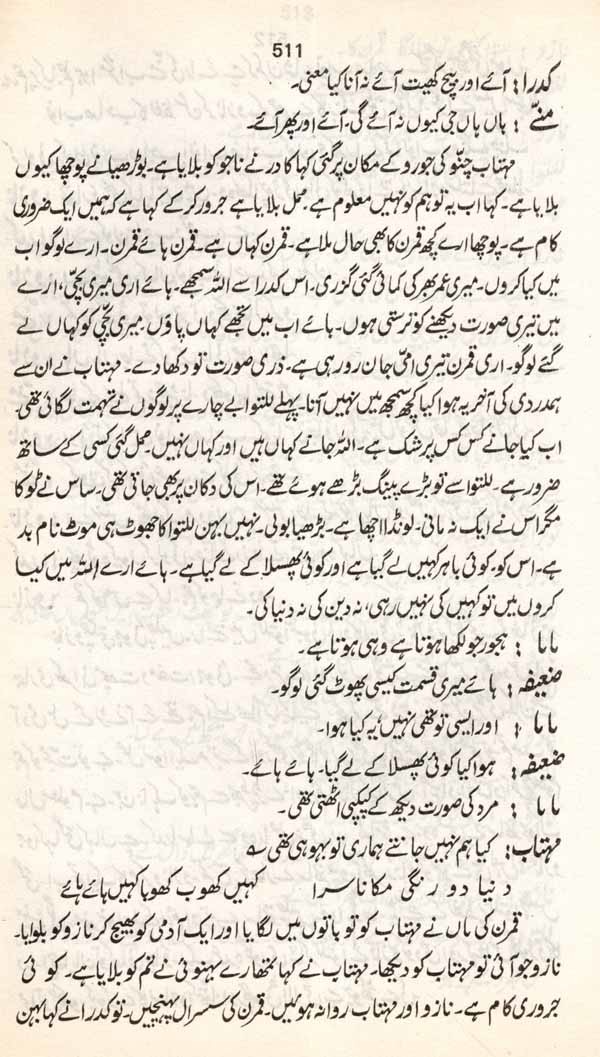 511
کدرا: آئے اور بیچ کھیت آئے نہ آنا کیا معنی۔
منّے: ہاں ہاں جی کیوں نہ آئے گی۔ آئے اور پھر آئے۔
مہتاب چنّو کی جورو کے مکان پر گئی کہا کادر نے ناجو کو بلایا ہے۔ بوڑھیا نے پوچھا کیوں
بلایا ہے۔ کہا اب یہ تو ہم کو نہیں معلوم ہے۔ مُل بلایا ہے جرور کر کے کہا ہے کہ ہمیں ایک ضروری
کام ہے۔ پوچھا ارے کچھ قمرن کا بھی حال ملا ہے۔ قمرن کہاں ہے۔ قمرن ہائے قمرن۔ ارے لوگو اب
میں کیا کروں۔ میری عمر بھر کی کمائی گئی گزری۔ اس کدرا سے اللہ سمجھے۔ ہائے اری میری بچّی، ارے
میں تیری صورت دیکھنے کو ترستی ہوں۔ ہائے اب میں تجھے کہاں پاؤں۔ میری بچّی کو کہاں لے
گئے لوگو۔ اری قمرن تیری امّی جان رو رہی ہے۔ ذری صورت تو دکھا دے۔ مہتاب نے ان سے
ہمدردی کی آخر یہ ہوا کیا کچھ سمجھ میں نہیں آتا۔ پہلے للتوا بے چارے پر لوگوں نے تہمت لگائی تھی۔
اب کیا جانے کس کس پر شک ہے۔ اللہ جانے کہاں ہیں اور کہاں نہیں۔ مل گئی کسی کے ساتھ
ضرور ہے۔ للتوا سے تو بڑے پینگ بڑھے ہوئے تھے۔ اس کی دکان پر بھی جاتی تھی۔ ساس نے ٹوکا
مگر اس نے ایک نہ مانی۔ لونڈا اچھا ہے۔ بڑھیا بولی۔ نہیں بہن للتوا کا جھوٹ ہی موٹ نام بد
ہے۔ اس کو کوئی باہر کہیں لے گیا ہے اور کوئی پھسلا کے لے گیا ہے۔ ہائے ارے اللہ میں کیا
کروں میں تو کہیں کی نہیں رہی، نہ دین کی نہ دنیا کی۔
ماما: ہجور جو لکھا ہوتا ہے وہی ہوتا ہے۔
ضعیفہ: ہائے میری قسمت کیسی پھوٹ گئی لوگو۔
ماما: اور ایسی تو تھی نہیں، یہ کیا ہوا۔
ضعیفہ: ہوا کیا کوئی پھسلا کے لے گیا۔ ہائے ہائے۔
ماما: مرد کی صورت دیکھ کے کپکپی اٹھتی تھی۔
مہتاب: کیا ہم نہیں جانتے ہماری تو بہو ہی تھی ؎
دنیا دو رنگی مکانا سرا کہیں کھوب کھوبا کہیں ہائے ہائے
قمرن کی ماں نے مہتاب کو تو باتوں میں لگایا اور ایک آدمی کو بھیج کر نازو کو بلوایا۔
نازو جو آئی تو مہتاب کو دیکھا۔ مہتاب نے کہا تمھارے بہنوئی نے تم کو بلایا ہے۔ کوئی
جروری کام ہے۔ نازو اور مہتاب روانہ ہوئیں۔ قمرن کی سسرال پہنچیں۔ تو کدرا نے کہا بہن